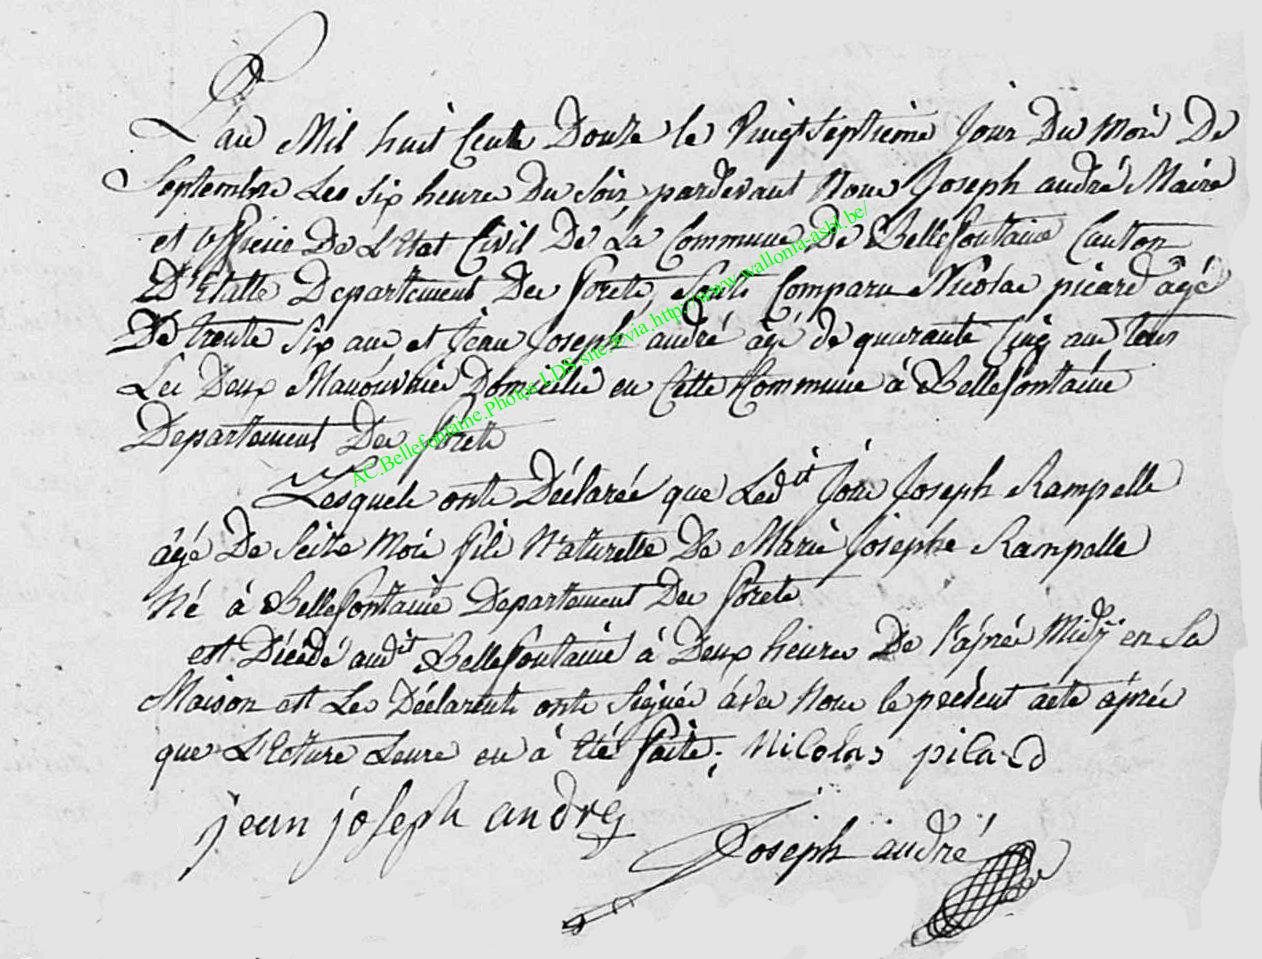 L'an Mil huit Cent Douze le Vingt Septieme Jour Du Mois De
Septembre Les six heures Du Soir pardevant Nous Joseph andré Maire
et officie De L'Etat Civil De La Commune De Bellefontaine Canton
D'Etalle Departement Des forets, Sont Comparu Nicolas picard agé
De trente Six ans et Jean Joseph andré agé de quarante Cinq ans tous
Les Deux Manouvrie Domicilié en Cette Commune à Bellefontaine
Departement Des forets
Lesquels onts Déclarés que Ledit Joseph Rampelle
âgé De Seize Mois fils Naturelle De Marie Josephe Rampelle
Né à Bellefontaine Departement Des forets
est Décédé audit Bellefontaine à Deux heures De l'aprés Midy en Sa
Maison et Les Déclarents onts Signés avec Nous le present acte aprés
que L'Ecture Leure en à été faite; Nicolas picard
jean joseph andre
Joseph andré
AC.Bellefontaine.Photos LDS site fr via http://www.wallonia-asbl.be/